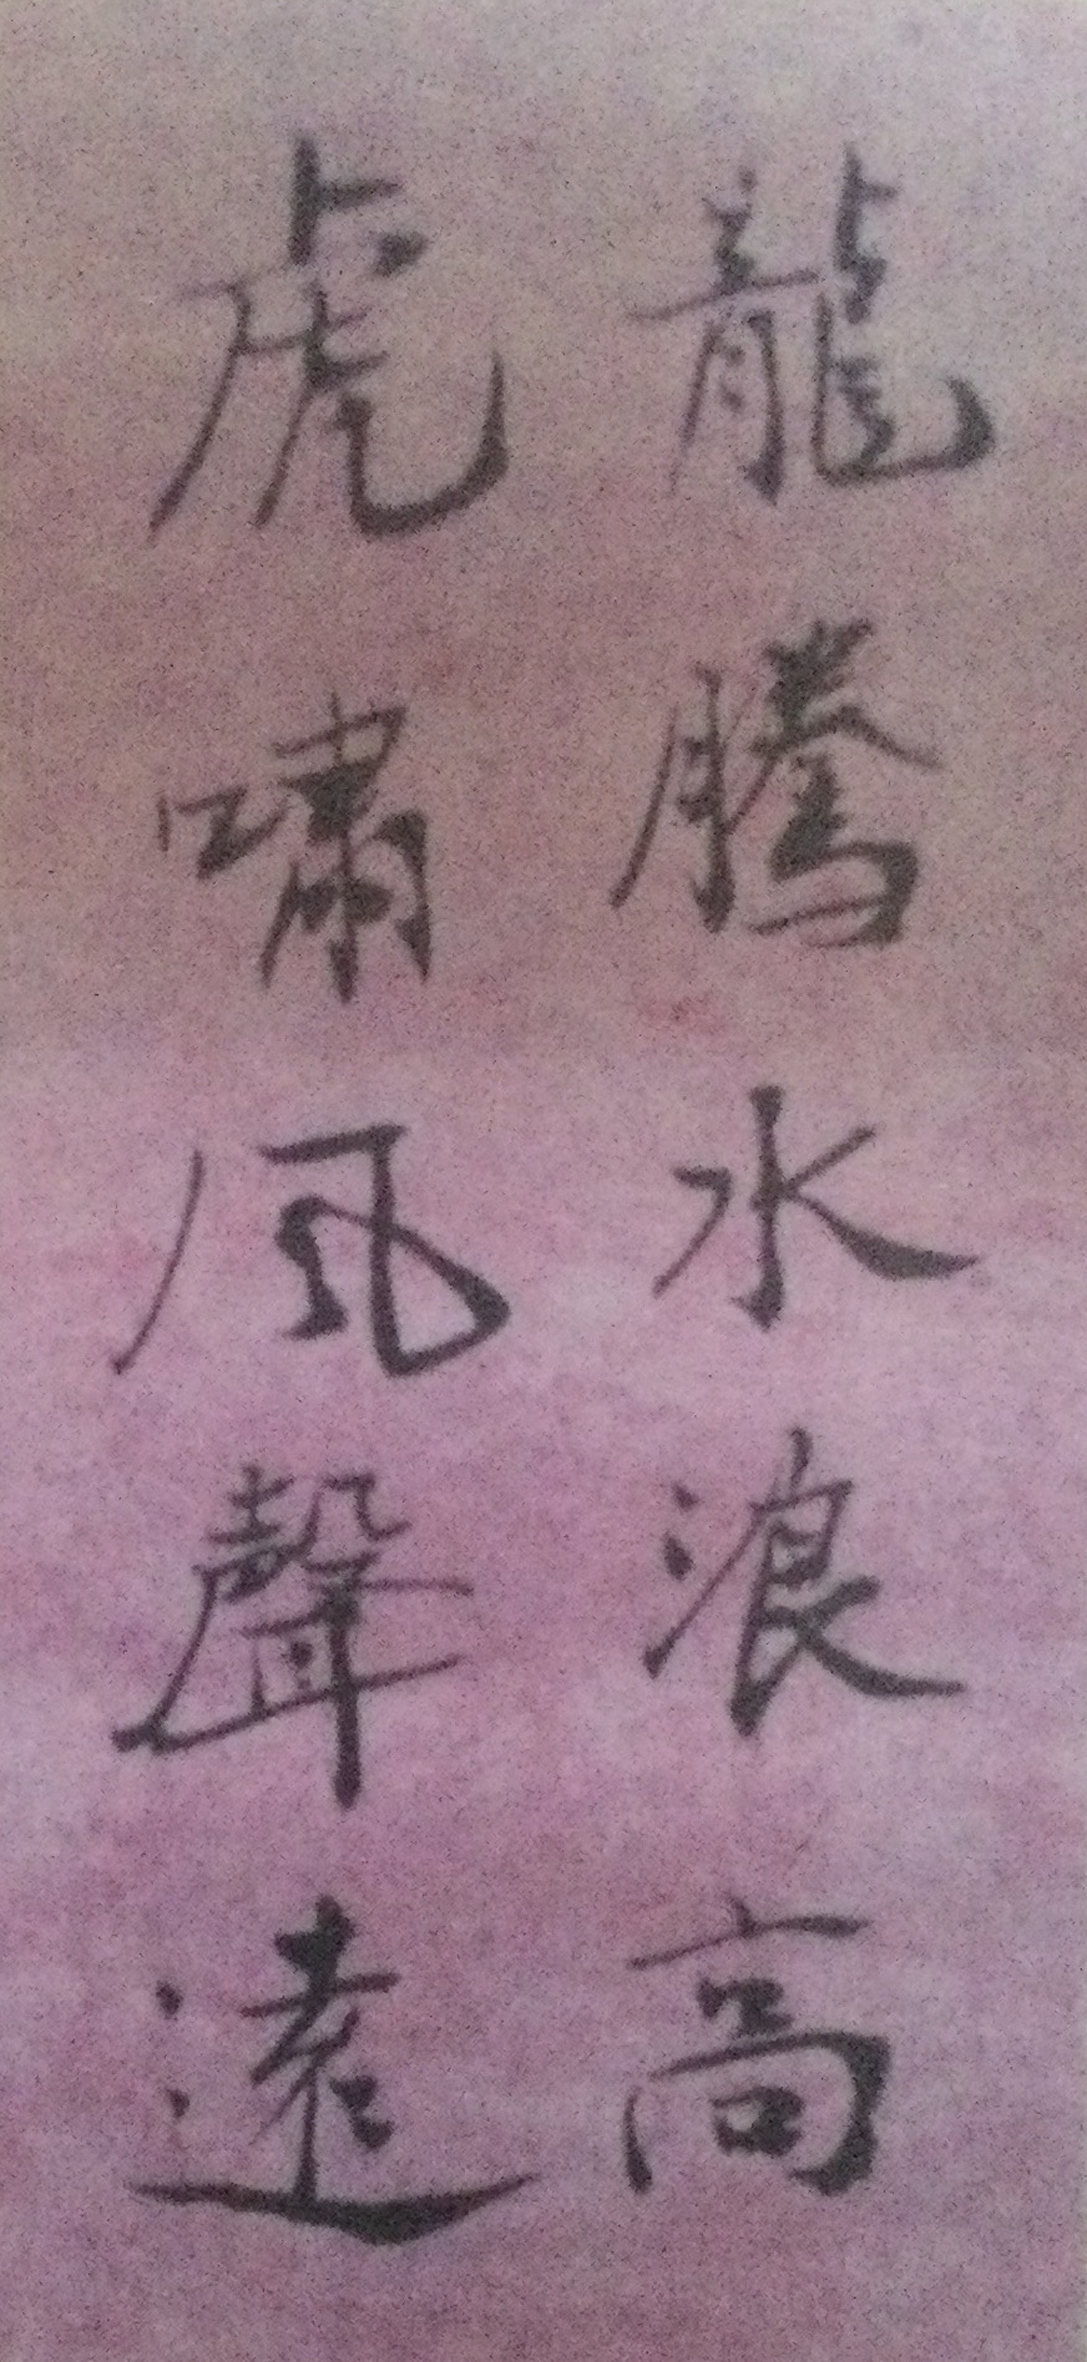 龍騰水浪高
虎嘯风聲遠